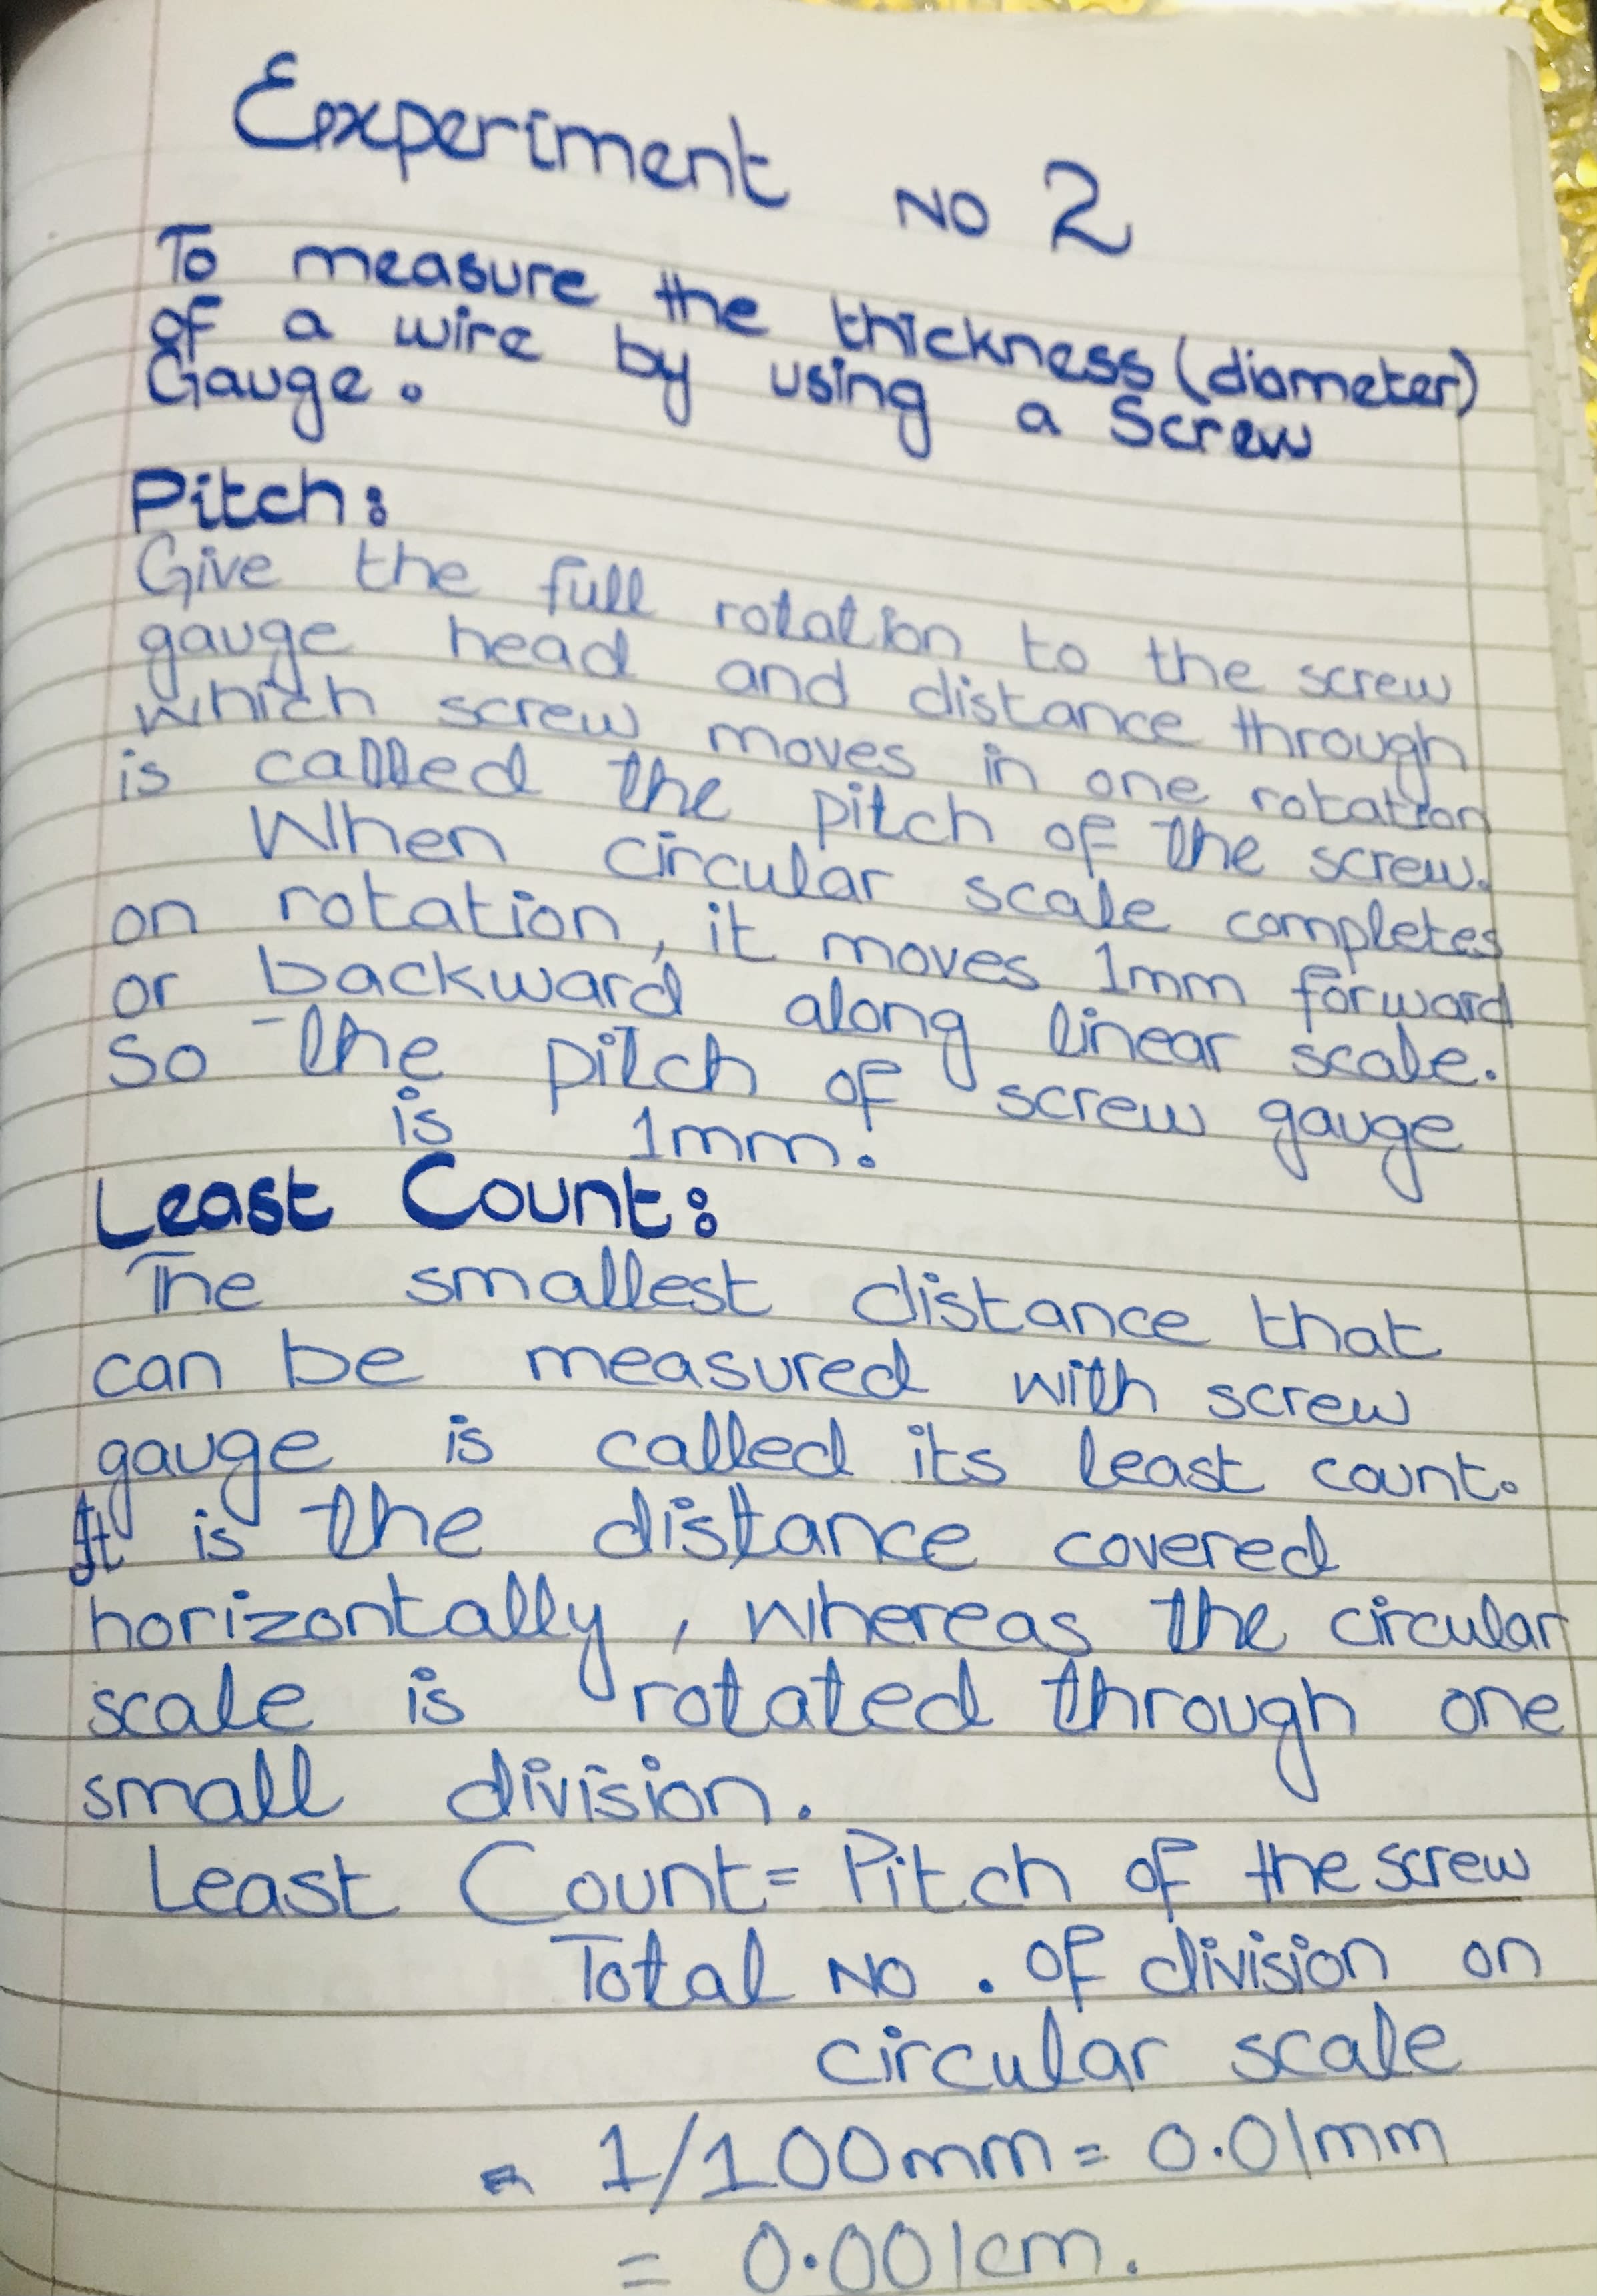 Experiment NO 2
To measure the thickness (diameter)
of a wire by using a Screw
Gauge.
Pitch:
Give the full rotation to the screw
gauge head and distance through
which screw moves in one rotation
is called the pitch of the screw.
When circular scale completes
on rotation, it moves 1mm forward
or backward along linear scale.
So the pitch of screw gauge
is 1mm.
Least Count:
The smallest distance that
can be measured with screw
gauge is called its least count.
It is the distance covered
horizontally, whereas the circular
scale is rotated through one
small division.
Least Count = Pitch of the screw
Total NO. of division on
circular scale
= 1/100mm = 0.01mm
= 0.001cm.